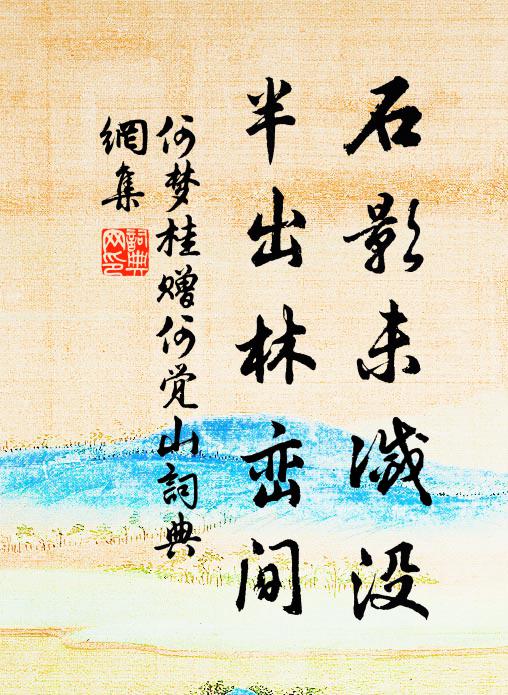 石影未灭没
半出林峦间
何梦桂赠何觉山詞典
網集
詞典網印